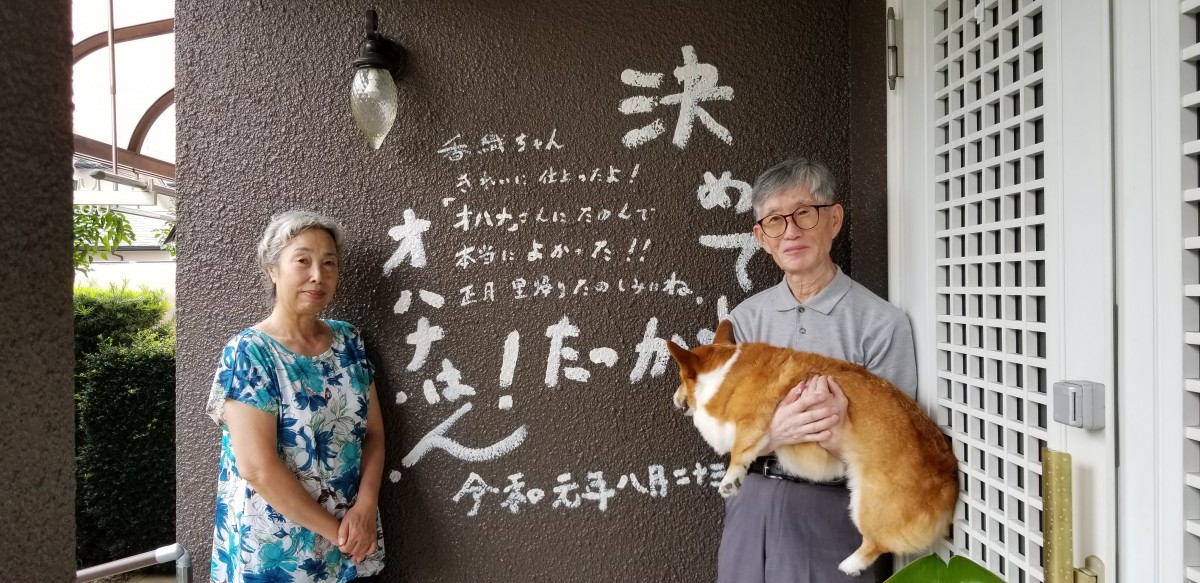 決めて
かった!
オハナはん
香織ちゃん
きれいに仕上ったよ!
「オハナ」さんにたのんで
本当によかった!!
正月里帰りたのしみにね。
令和元年八月二十三